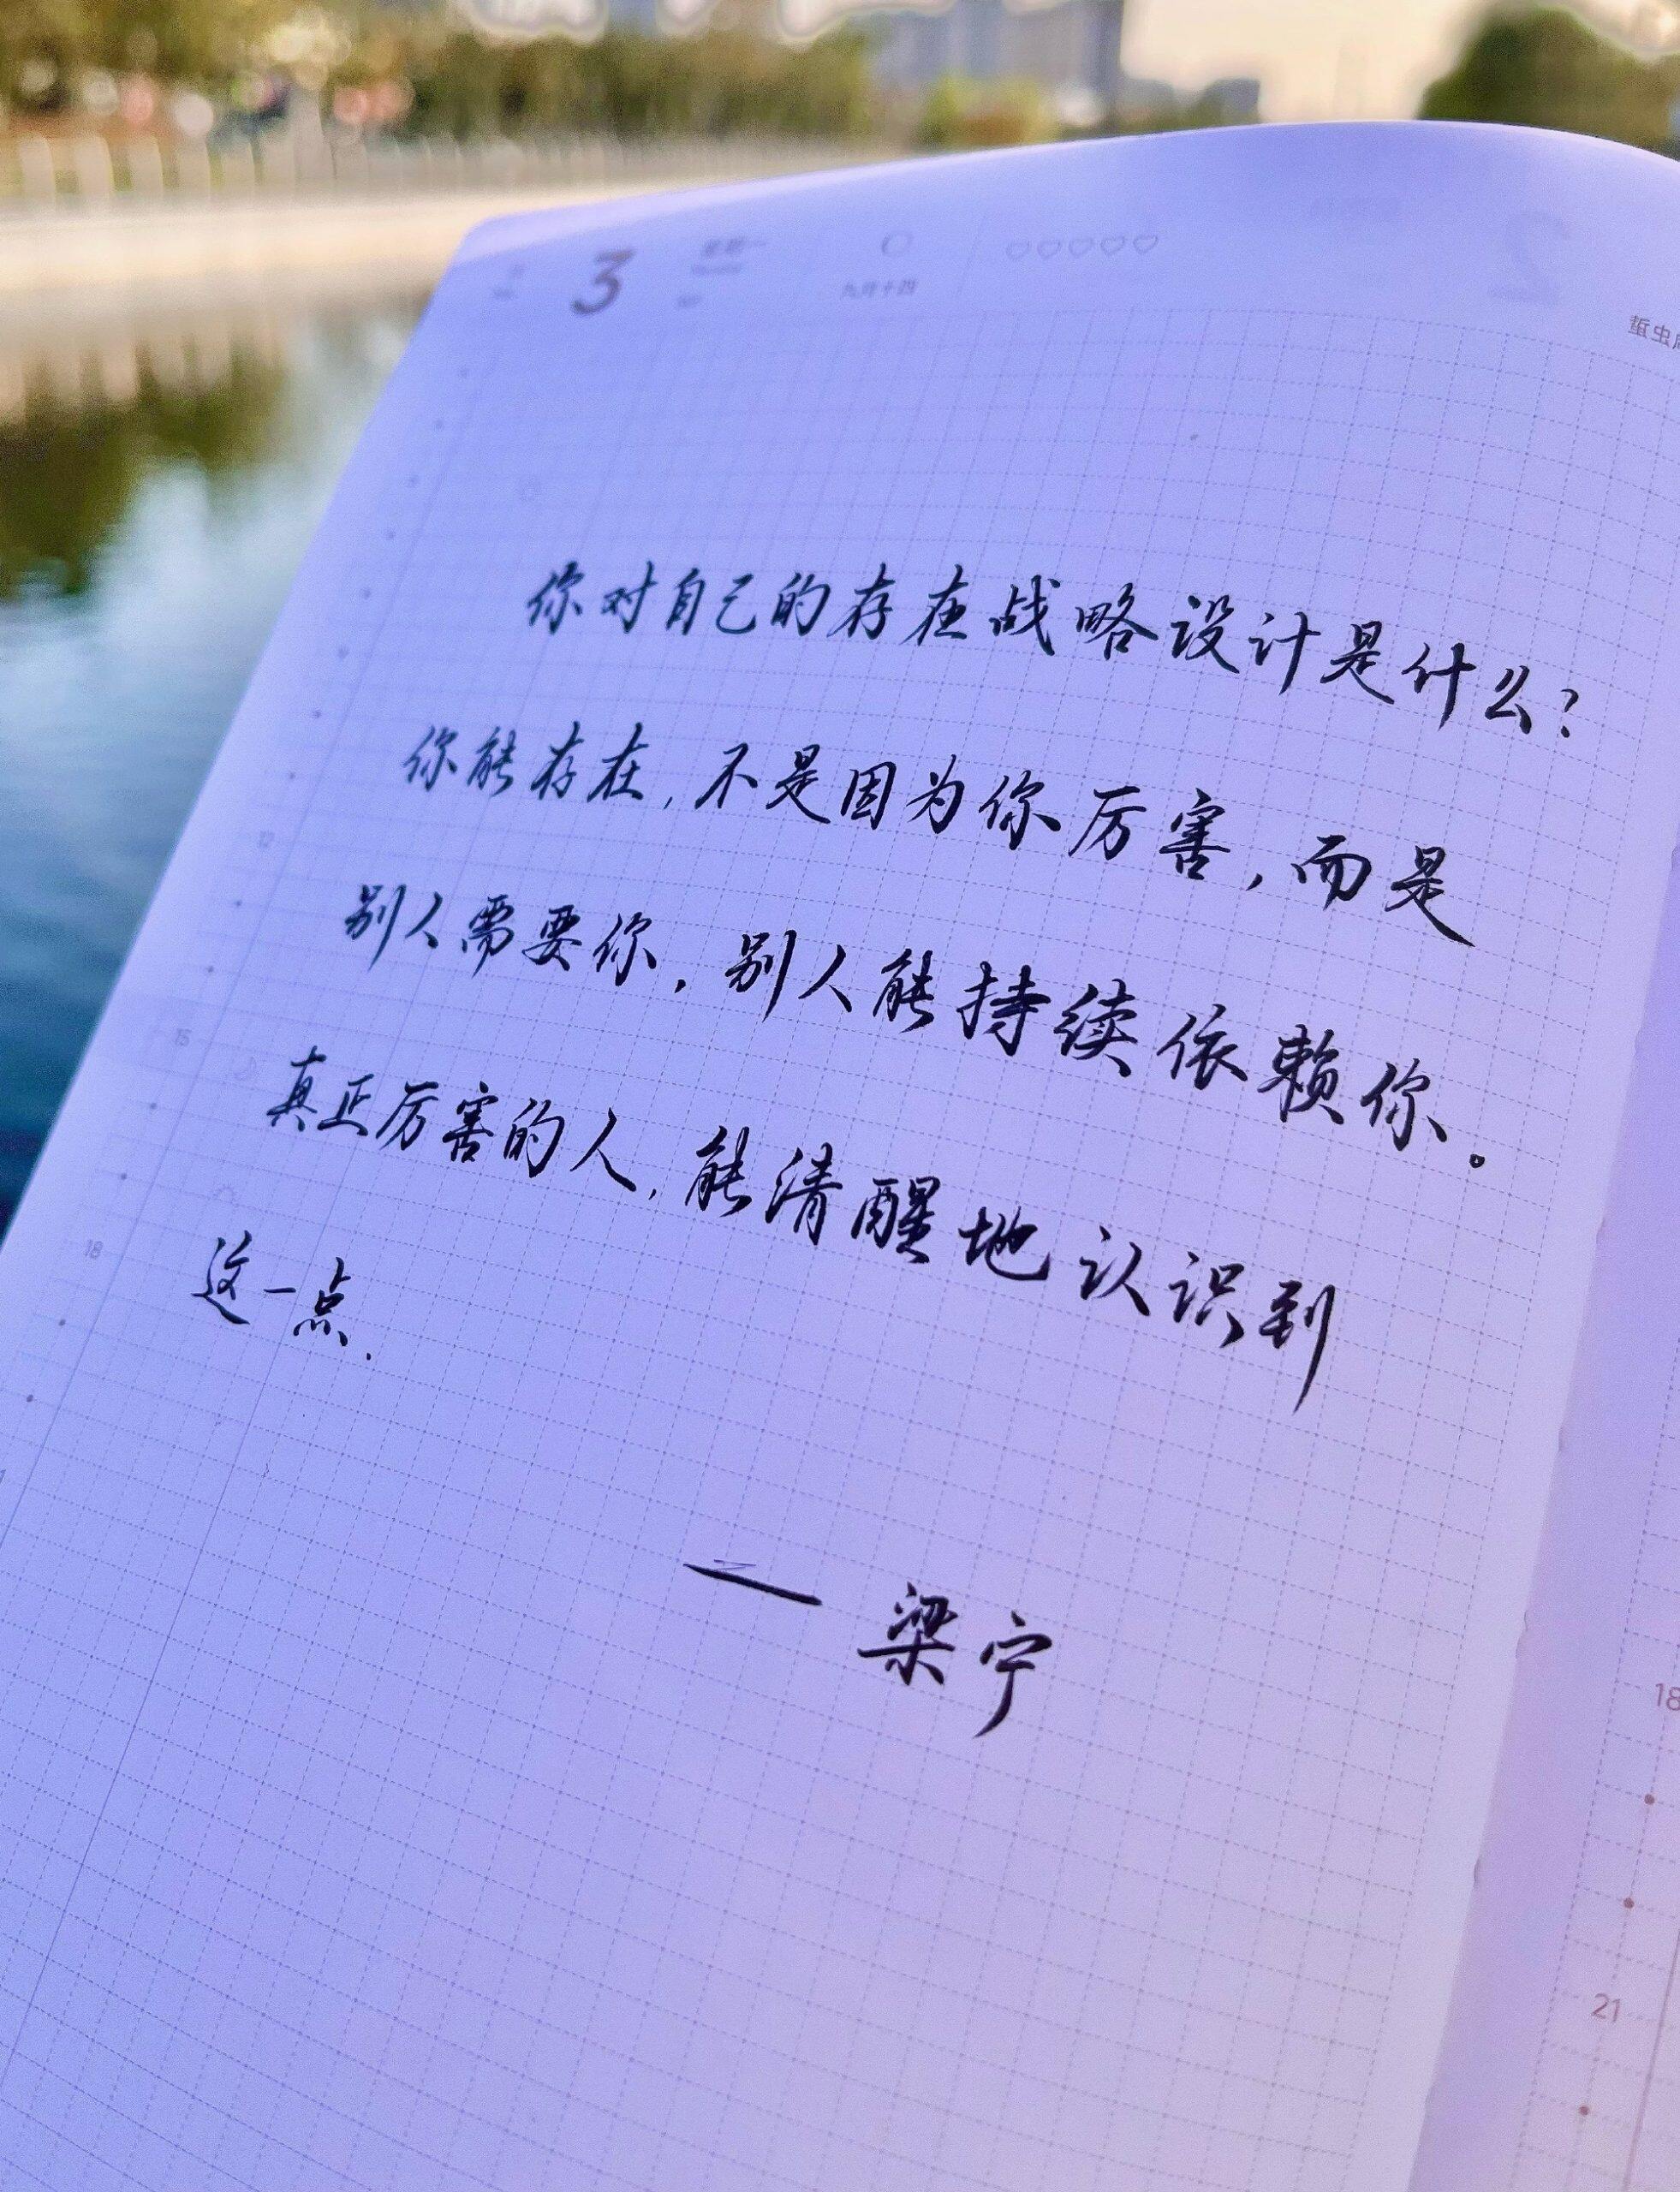 3
九月十四
蛰虫
你对自己的存在战略设计是什么?
你能存在,不是因为你厉害,而是
别人需要你,别人能持续依赖你。
真正厉害的人,能清醒地认识到
这一点.
— 梁宁
12
15
18
18
21